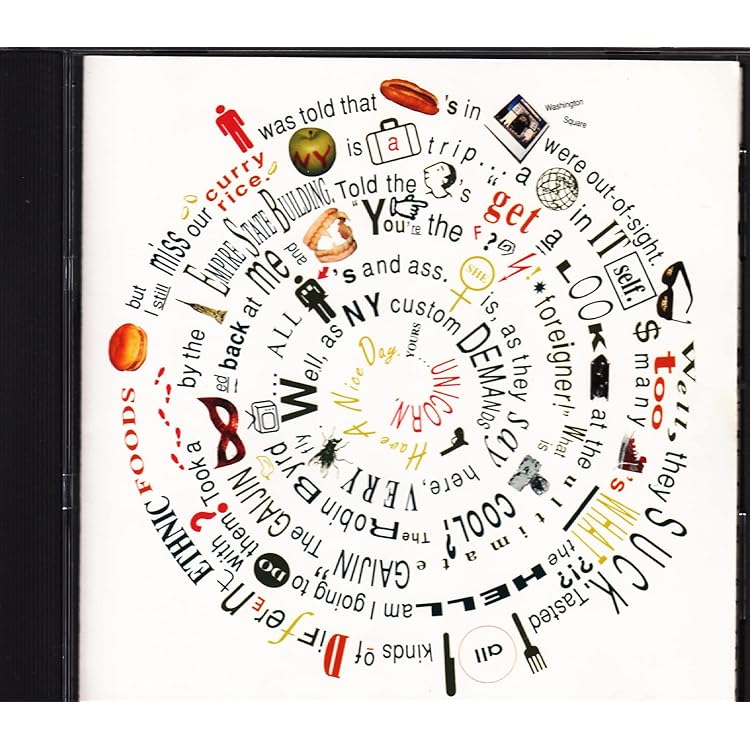 was told that 's in Washington Square were out-of-sight.
Well, they SUCK. Tasted all kinds of DiffeREnt ETHNIC FOODS
but I still miss our curry rice.
NY is a trip... a in IT self.
$ too many 's WHAT ?!? the HELL am I going to DO with them? Took a
by the EMPIRE STATE BUILDING, Told the 's "get a LOOK at the ultimate GAIJIN" The GAIJIN
ed back at me and
"You're the F?@ !* foreigner!" What is COOL? The Robin Byrd
... ALL 's and ass.
SHE is, as they say here, VERY fly
Well, as NY custom DEMANDS
Have A Nice Day.
YOURS....
UNICORN.